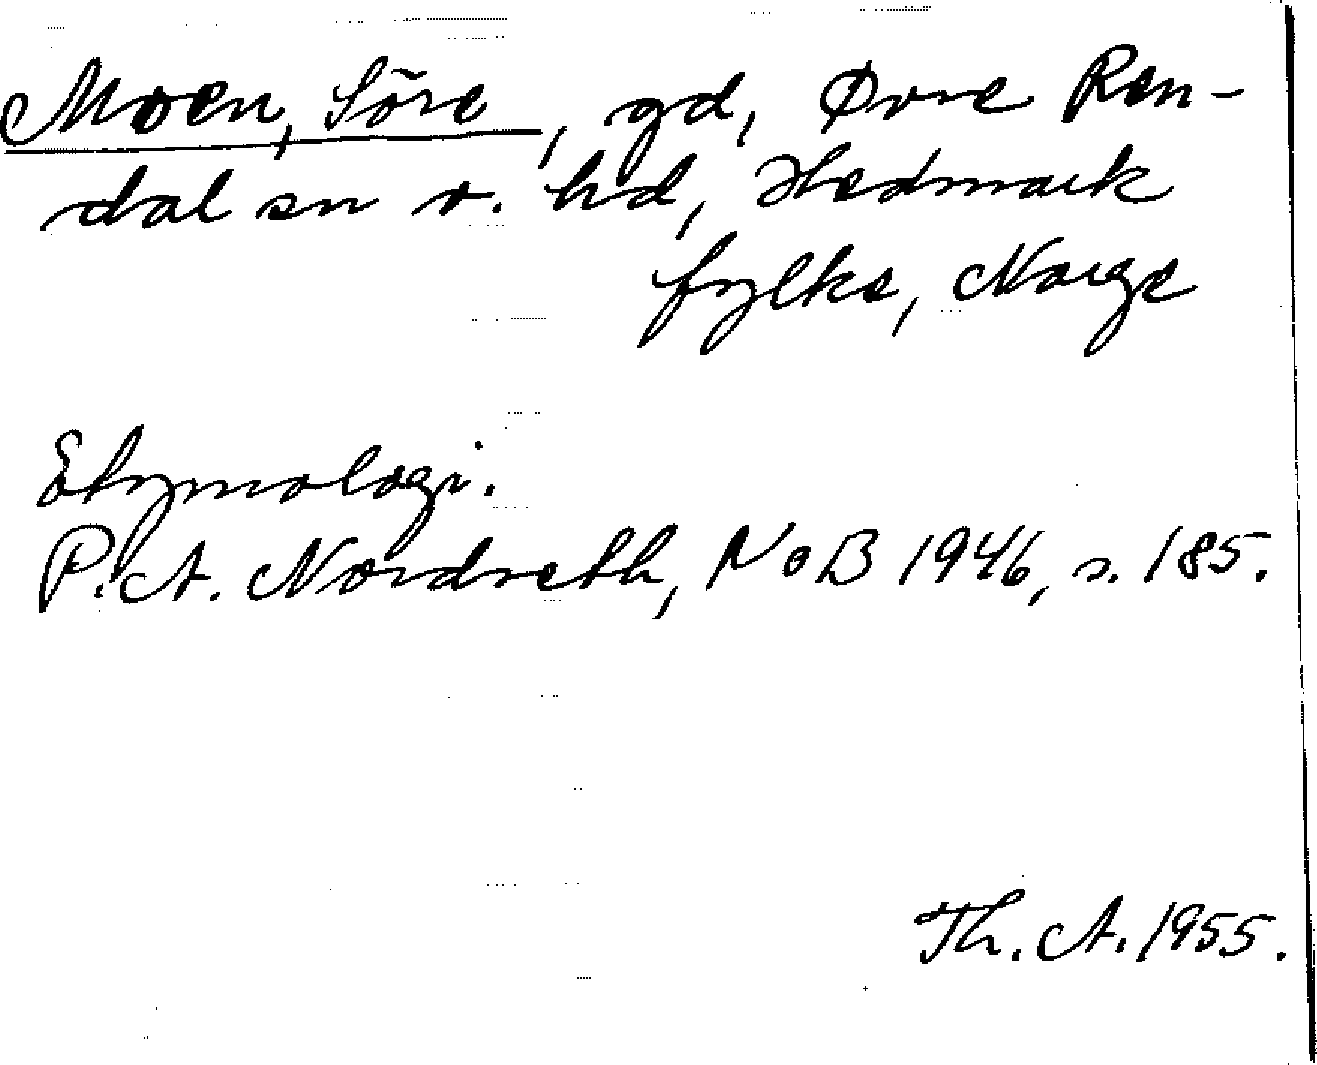 Moen, Söre, gd, Øvre Ren-
dal sn o. hd, Hedmark
fylke, Norge
Etymologi.
P. A. Nordseth, NoB 1946, s. 185.
Th. A. 1955.